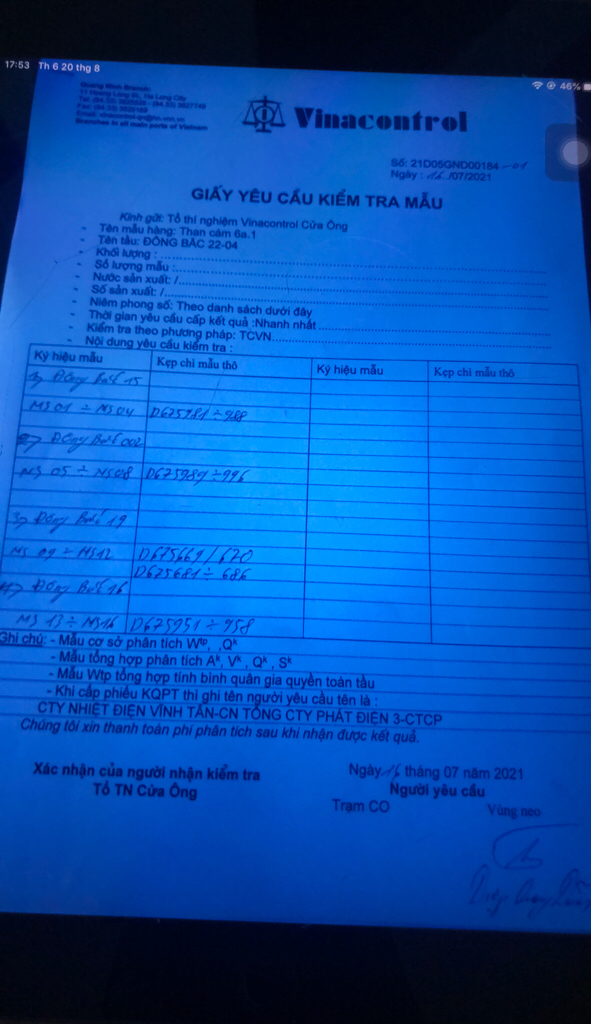 17:53 Th 6 20 thg 8
46%
Quang Ninh Branch:
Branches in all main ports of Vietnam
Vinacontrol
Số: 21D05GND00184-01
Ngày: 16/07/2021
GIẤY YÊU CẦU KIỂM TRA MẪU
Kính gửi: Tổ thí nghiệm Vinacontrol Cửa Ông
- Tên mẫu hàng: Than cám 6a.1
- Tên tàu: ĐÔNG BẮC 22-04
- Khối lượng :
- Số lượng mẫu :
- Nước sản xuất: /
- Số sản xuất: /
- Niêm phong số: Theo danh sách dưới đây
- Thời gian yêu cầu cấp kết quả :Nhanh nhất
- Kiểm tra theo phương pháp: TCVN
- Nội dung yêu cầu kiểm tra :
Ký hiệu mẫu Kẹp chì mẫu thô Ký hiệu mẫu Kẹp chì mẫu thô
Đông Bắc 15
MS 01 ÷ MS04 D675981 ÷ 988
Đông Bắc 002
MS 05 ÷ MS08 D675989 ÷ 996
3, Đông Bắc 19
MS 09 ÷ MS12 D675669/670
D675681 ÷ 686
Đông Bắc 16
MS 13 ÷ MS16 D675951 ÷ 958
Ghi chú: - Mẫu cơ sở phân tích Wtp, ,Qk
- Mẫu tổng hợp phân tích Ak, Vk , Qk , Sk
- Mẫu Wtp tổng hợp tính bình quân gia quyền toàn tàu
- Khi cấp phiếu KQPT thì ghi tên người yêu cầu tên là :
CTY NHIỆT ĐIỆN VĨNH TÂN-CN TỔNG CTY PHÁT ĐIỆN 3-CTCP
Chúng tôi xin thanh toán phí phân tích sau khi nhận được kết quả.
Xác nhận của người nhận kiểm tra
Tổ TN Cửa Ông
Ngày 16 tháng 07 năm 2021
Người yêu cầu
Trạm CO Vùng neo